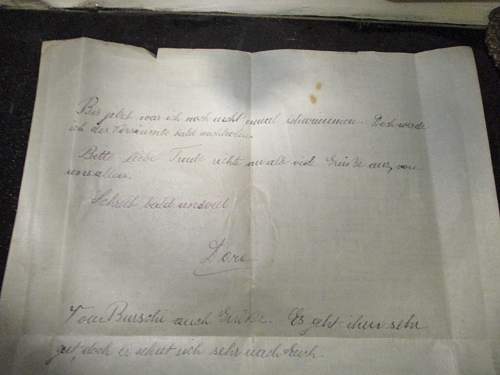 Bis jetzt war ich noch nicht einmal schwimmen. Doch werde
ich das Versäumte bald nachholen.
Bitte liebe Trude richt an alle viele Grüße aus, von
uns allen.
Schreib bald und viel!
Dore
Vom Burschi auch Grüße. Es geht ihm sehr
gut, doch er sehnt sich sehr nach Euch.